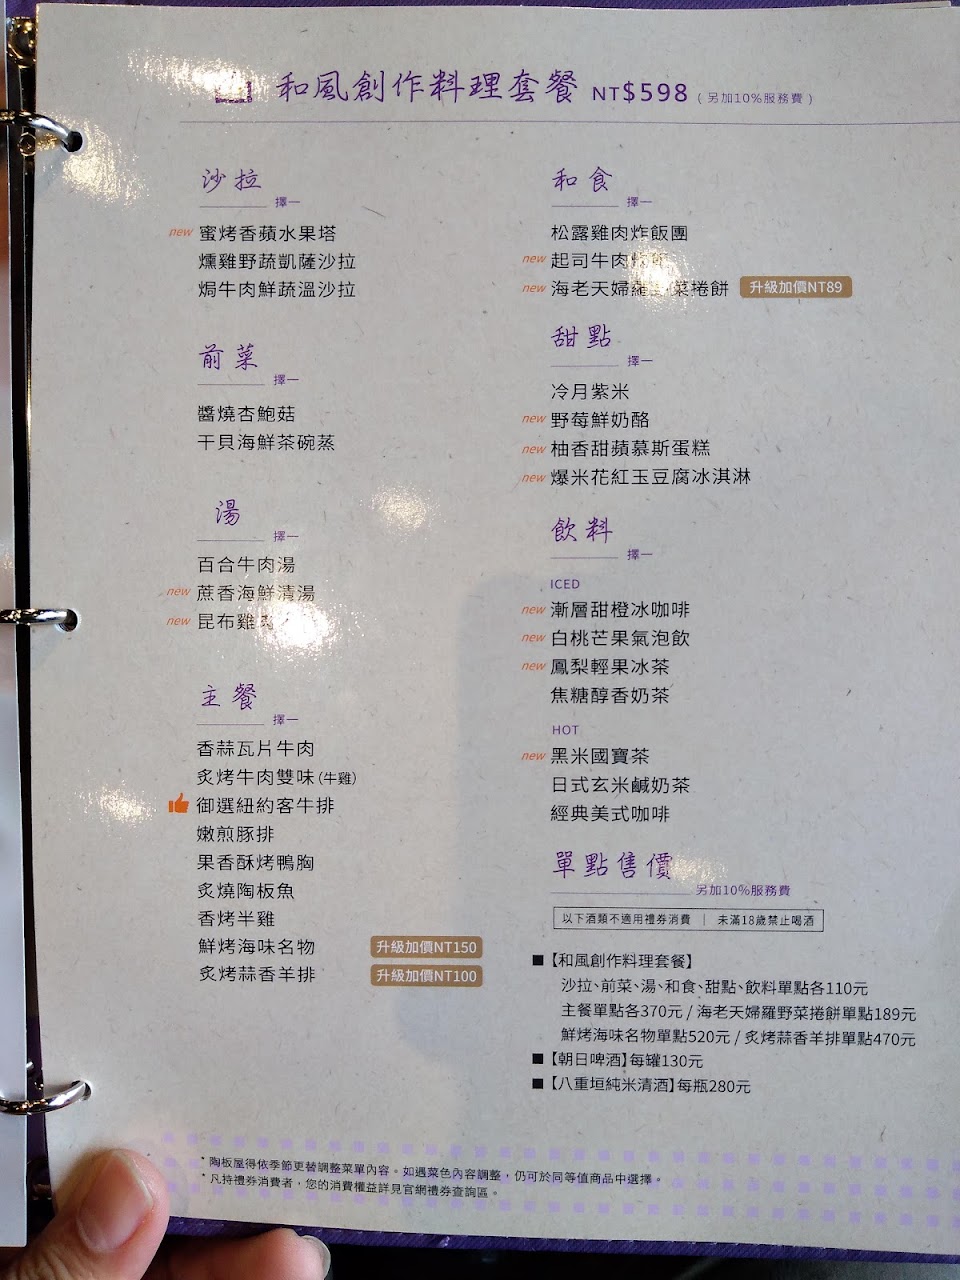 和風創作料理套餐 NT$598 (另加10%服務費)
沙拉
擇一
new 蜜烤香蘋水果塔
燻雞野蔬凱薩沙拉
焗牛肉鮮蔬溫沙拉
前菜
擇一
醬燒杏鮑菇
干貝海鮮茶碗蒸
湯
擇一
百合牛肉湯
new 蔗香海鮮清湯
new 昆布雞
主餐
擇一
香蒜瓦片牛肉
炙烤牛肉雙味(牛雞)
御選紐約客牛排
嫩煎豚排
果香酥烤鴨胸
炙燒陶板魚
香烤半雞
鮮烤海味名物 升級加價NT150
炙烤蒜香羊排 升級加價NT100
和食
擇一
松露雞肉炸飯團
new 起司牛肉
new 海老天婦羅野菜捲餅 升級加價NT89
甜點
擇一
冷月紫米
new 野莓鮮奶酪
new 柚香甜蘋慕斯蛋糕
new 爆米花紅玉豆腐冰淇淋
飲料
擇一
ICED
new 漸層甜橙冰咖啡
new 白桃芒果氣泡飲
new 鳳梨輕果冰茶
焦糖醇香奶茶
HOT
new 黑米國寶茶
日式玄米鹹奶茶
經典美式咖啡
單點售價
另加10%服務費
以下酒類不適用禮券消費 | 未滿18歲禁止喝酒
■【和風創作料理套餐】
沙拉、前菜、湯、和食、甜點、飲料單點各110元
主餐單點各370元 / 海老天婦羅野菜捲餅單點189元
鮮烤海味名物單點520元 / 炙烤蒜香羊排單點470元
■【朝日啤酒】每罐130元
■【八重垣純米清酒】每瓶280元
* 陶板屋得依季節更替調整菜單內容。如遇菜色內容調整，仍可於同等值商品中選擇。
* 凡持禮券消費者，您的消費權益詳見官網禮券查詢區。